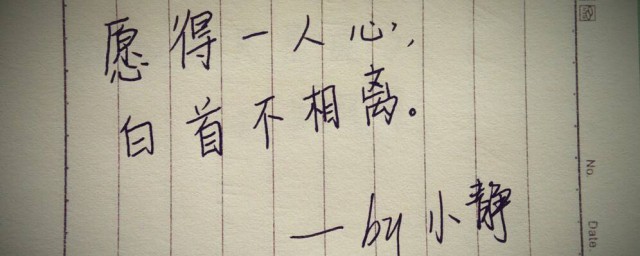 愿得一人心,
白首不相离。
—by小静
No.
Date